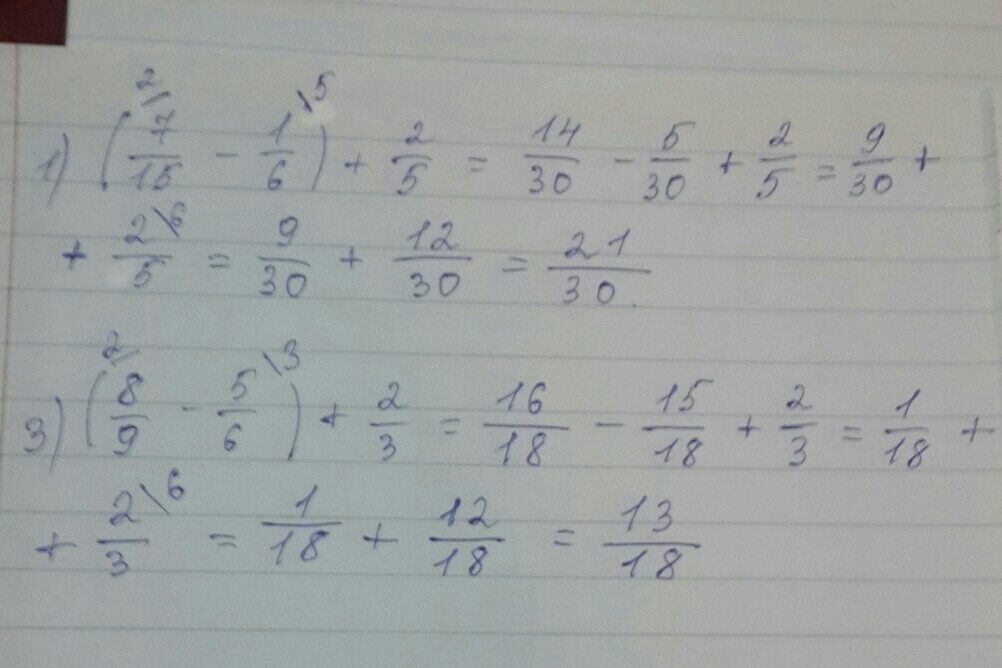 1) (7/15 ²/ − 1/6 \5) + 2/5 = 14/30 − 5/30 + 2/5 = 9/30 +
+ 2/5 \6 = 9/30 + 12/30 = 21/30.
3) (8/9 ²/ − 5/6 \3) + 2/3 = 16/18 − 15/18 + 2/3 = 1/18 +
+ 2/3 \6 = 1/18 + 12/18 = 13/18